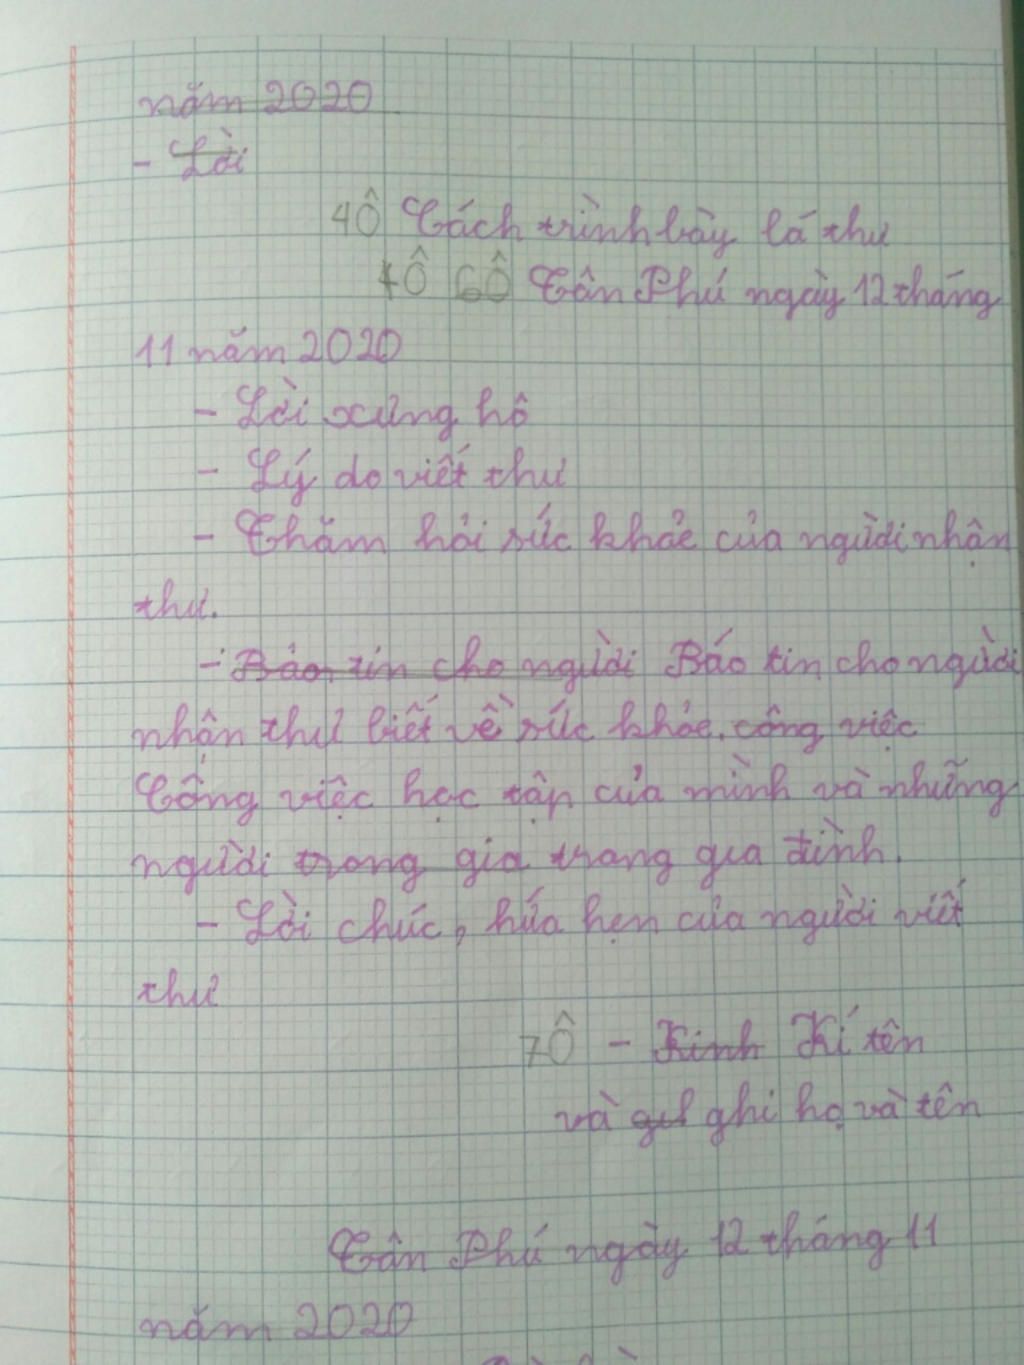 năm 2020
- Lời
4Ô Cách trình bày lá thư
4Ô 6Ô Tân Phú ngày 12 tháng
11 năm 2020
- Lời xưng hô
- Lý do viết thư
- Thăm hỏi sức khỏe của người nhận
thư.
- Báo tin cho người Báo tin cho người
nhận thư biết về sức khỏe. công việc
Công việc học tập của mình và những
người trong gia trong gia đình.
- Lời chúc, hứa hẹn của người viết
thư
7Ô - Kinh Kí tên
và ghi họ và tên
Tân Phú ngày 12 tháng 11
năm 2020